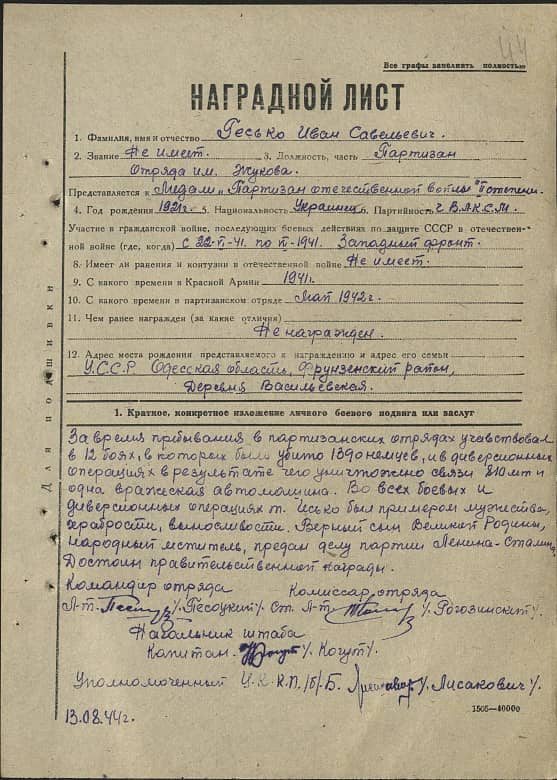 44
Все графы заполнять полностью
НАГРАДНОЙ ЛИСТ
1. Фамилия, имя и отчество Гесько Иван Савельевич.
2. Звание Не имеет. 3. Должность, часть Партизан
Отряда им. Жукова.
Представляется к Медали „Партизан отечественной войны" II степени.
4. Год рождения 1921г. 5. Национальность Украинец 6. Партийность ч. В.Л.К.С.М.
Участие в гражданской войне, последующих боевых действиях по защите СССР в отечествен-
ной войне (где, когда) с 22-VI-41. по VI-1941. Западный фронт.
8. Имеет ли ранения и контузии в отечественной войне Не имеет.
9. С какого времени в Красной Армии 1941г.
10. С какого времени в партизанском отряде Май 1942г.
11. Чем ранее награжден (за какие отличия)
Не награжден.
12. Адрес места рождения представляемого к награждению и адрес его семьи
У.С.С.Р. Одесская область, Фрунзенский район,
Деревня Васильевская.
Для подшивки
1. Краткое, конкретное изложение личного боевого подвига или заслуг
За время пребывания в партизанских отрядах участвовал
в 12 боях, в которых было убито 1390 немцев, и в диверсионных
операциях в результате чего уничтожено связи 810 мт и
одна вражеская автомашина. Во всех боевых и
диверсионных операциях т. Гесько был примером мужества,
храбрости, выносливости. Верный сын Великой Родины,
народный мститель, предан делу партии Ленина-Сталина
Достоин правительственной награды.
Командир отряда Комиссар отряда
Л-т. /Песоцкий/. Ст. Л-т. /Рогозинский/
Начальник штаба
Капитан. /Когут/
Уполномоченный Ц.К.К.П./б/.Б. /Лисакович/
13.08.44г.
1505—40000